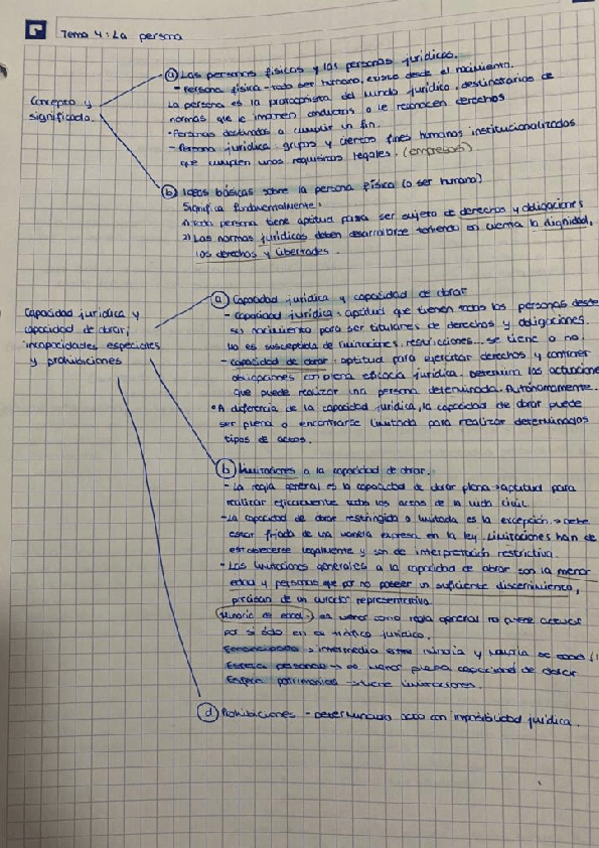 Tema 4: La persona
Concepto y
significado.
a) Las personas físicas y las personas jurídicas.
- Persona física - todo ser humano, existe desde el nacimiento.
La persona es la protagonista del mundo jurídico, destinatarios de
normas que le imponen conductas o le reconocen derechos
· Personas destinadas a cumplir un fin.
- Persona jurídica: grupos y ciertos fines humanos institucionalizados
que cumplen unos requisitos legales. (empresas)
b) Ideas básicas sobre la persona física (o ser humano)
Significa fundamentalmente:
1) toda persona tiene aptitud para ser sujeto de derechos y obligaciones
2) Las normas jurídicas deben desarrollarse teniendo en cuenta la dignidad,
los derechos y libertades.
Capacidad jurídica y
capacidad de obrar;
incapacidades especiales
y prohibiciones
a) Capacidad jurídica y capacidad de obrar
- capacidad jurídica: aptitud que tienen todas las personas desde
su nacimiento para ser titulares de derechos y obligaciones.
No es susceptible de limitaciones, restricciones... se tiene o no.
- capacidad de obrar: aptitud para ejercitar derechos y contraer
obligaciones con plena eficacia jurídica. Determina las actuaciones
que puede realizar una persona determinada. Autónomamente.
· A diferencia de la capacidad jurídica, la capacidad de obrar puede
ser plena o encontrarse limitada para realizar determinados
tipos de actos.
b) Limitaciones a la capacidad de obrar.
- La regla general es la capacidad de obrar plena → aptitud para
realizar eficazmente todos los actos de la vida civil
- La capacidad de obrar restringida o limitada es la excepción → debe
estar fijada de una manera expresa en la ley. Limitaciones han de
establecerse legalmente y son de interpretación restrictiva.
- Las limitaciones generales a la capacidad de obrar son la menor
edad y personas que por no poseer un suficiente discernimiento,
precisan de un curador representativo.
Minoría de edad → es menor como regla general no puede actuar
por sí solo en el tráfico jurídico.
Emancipados → intermedia entre minoría y mayoría de edad
Esfera personal → de menor plena capacidad de obrar
Esfera patrimonial → tiene limitaciones.
d) Prohibiciones - determinado acto con imposibilidad jurídica.